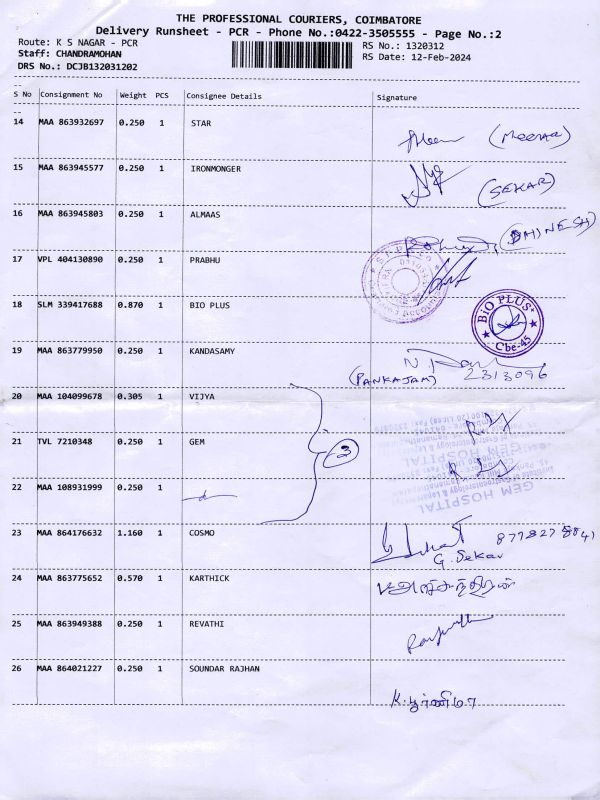 THE PROFESSIONAL COURIERS, COIMBATORE
Delivery Runsheet - PCR - Phone No.:0422-3505555 - Page No.:2
Route: K S NAGAR - PCR
RS No.: 1320312
Staff: CHANDRAMOHAN
RS Date: 12-Feb-2024
DRS No.: DCJB132031202
S No Consignment No Weight PCS Consignee Details Signature
14 MAA 863932697 0.250 1 STAR
(MEENA)
15 MAA 863945577 0.250 1 IRONMONGER
(SEKAR)
16 MAA 863945803 0.250 1 ALMAAS
(DHINESH)
17 VPL 404130890 0.250 1 PRABHU
18 SLM 339417688 0.870 1 BIO PLUS
BIO PLUS
Cbe-45
19 MAA 863779950 0.250 1 KANDASAMY
(PANKAJAM) 2313096
20 MAA 104099678 0.305 1 VIJYA
21 TVL 7210348 0.250 1 GEM
3
GEM HOSPITAL
22 MAA 108931999 0.250 1
23 MAA 864176632 1.160 1 COSMO
G. Sekar
24 MAA 863775652 0.570 1 KARTHICK
25 MAA 863949388 0.250 1 REVATHI
26 MAA 864021227 0.250 1 SOUNDAR RAJHAN
K. பூர்ணிமா